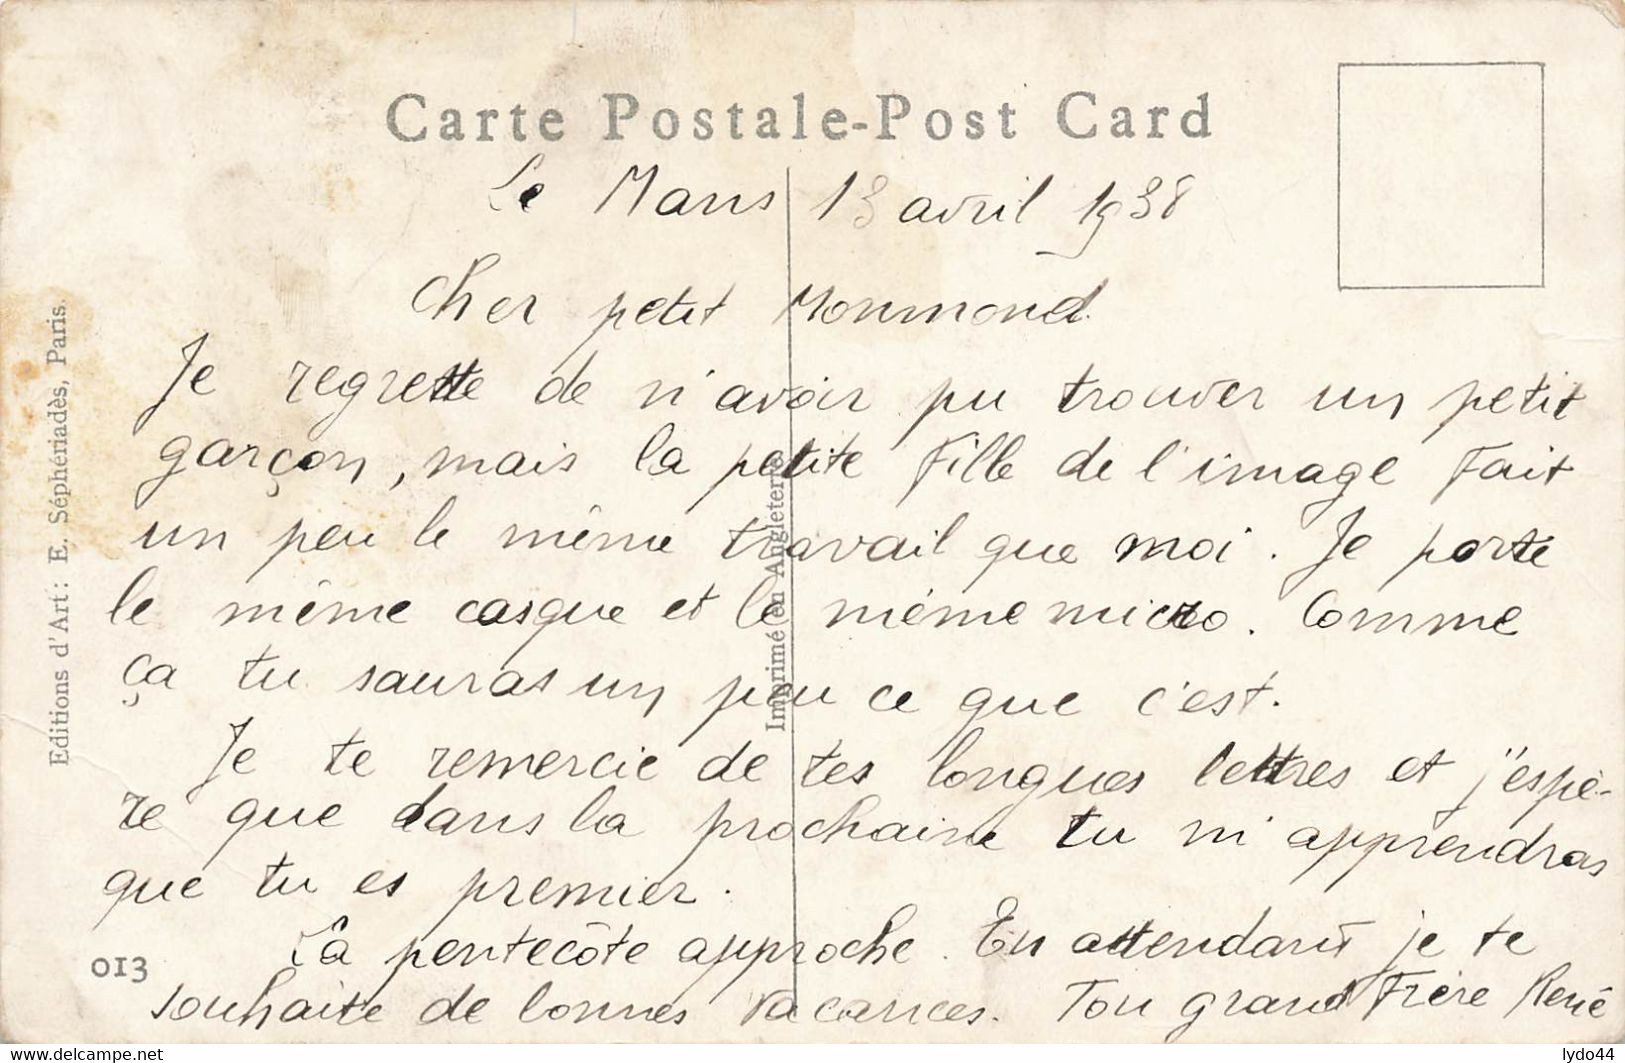 Carte Postale-Post Card
Le Mans 13 avril 1938
Cher petit Monmond.
Je regrette de n'avoir pu trouver un petit
garçon, mais la petite fille de l'image fait
un peu le même travail que moi. Je porte
le même casque et le même micro. Comme
ça tu sauras un peu ce que c'est.
Je te remercie de tes longues lettres et j'espè-
re que dans la prochaine tu m'apprendras
que tu es premier.
La pentecôte approche. En attendant je te
souhaite de bonnes vacances. Ton grand Frère René
Editions d'Art: E. Séphériadès, Paris.
Imprimé en Angleterre
013
delcampe.net
lydo44